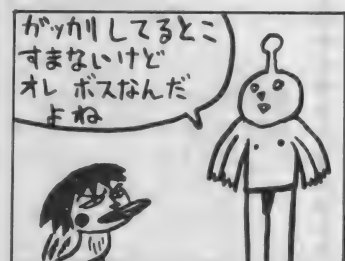 ガッカリしてるとこ
すまないけど
オレ ボスなんだ
よね